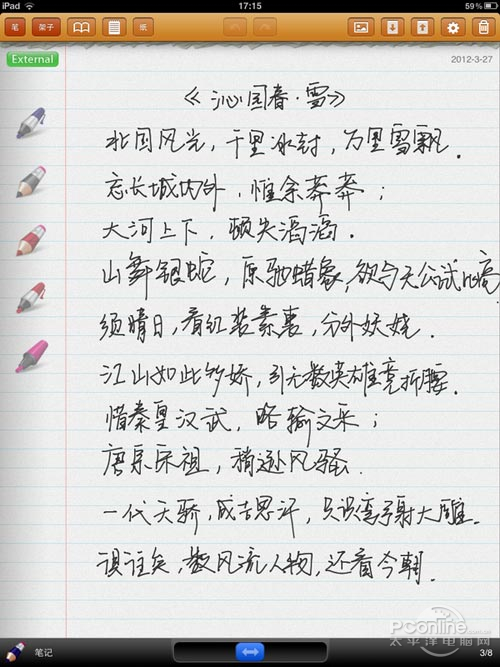 iPad 17:15 59%
笔 架子 纸
External 2012-3-27
《沁园春·雪》
北国风光，千里冰封，万里雪飘.
忘长城内外，惟余莽莽；
大河上下，顿失滔滔.
山舞银蛇，原驰蜡象，欲与天公试比高
须晴日，看红装素裹，分外妖娆.
江山如此多娇，引无数英雄竞折腰.
惜秦皇汉武，略输文采；
唐宗宋祖，稍逊风骚.
一代天骄，成吉思汗，只识弯弓射大雕.
俱往矣，数风流人物，还看今朝.
PConline
太平洋电脑网
笔记 3/8